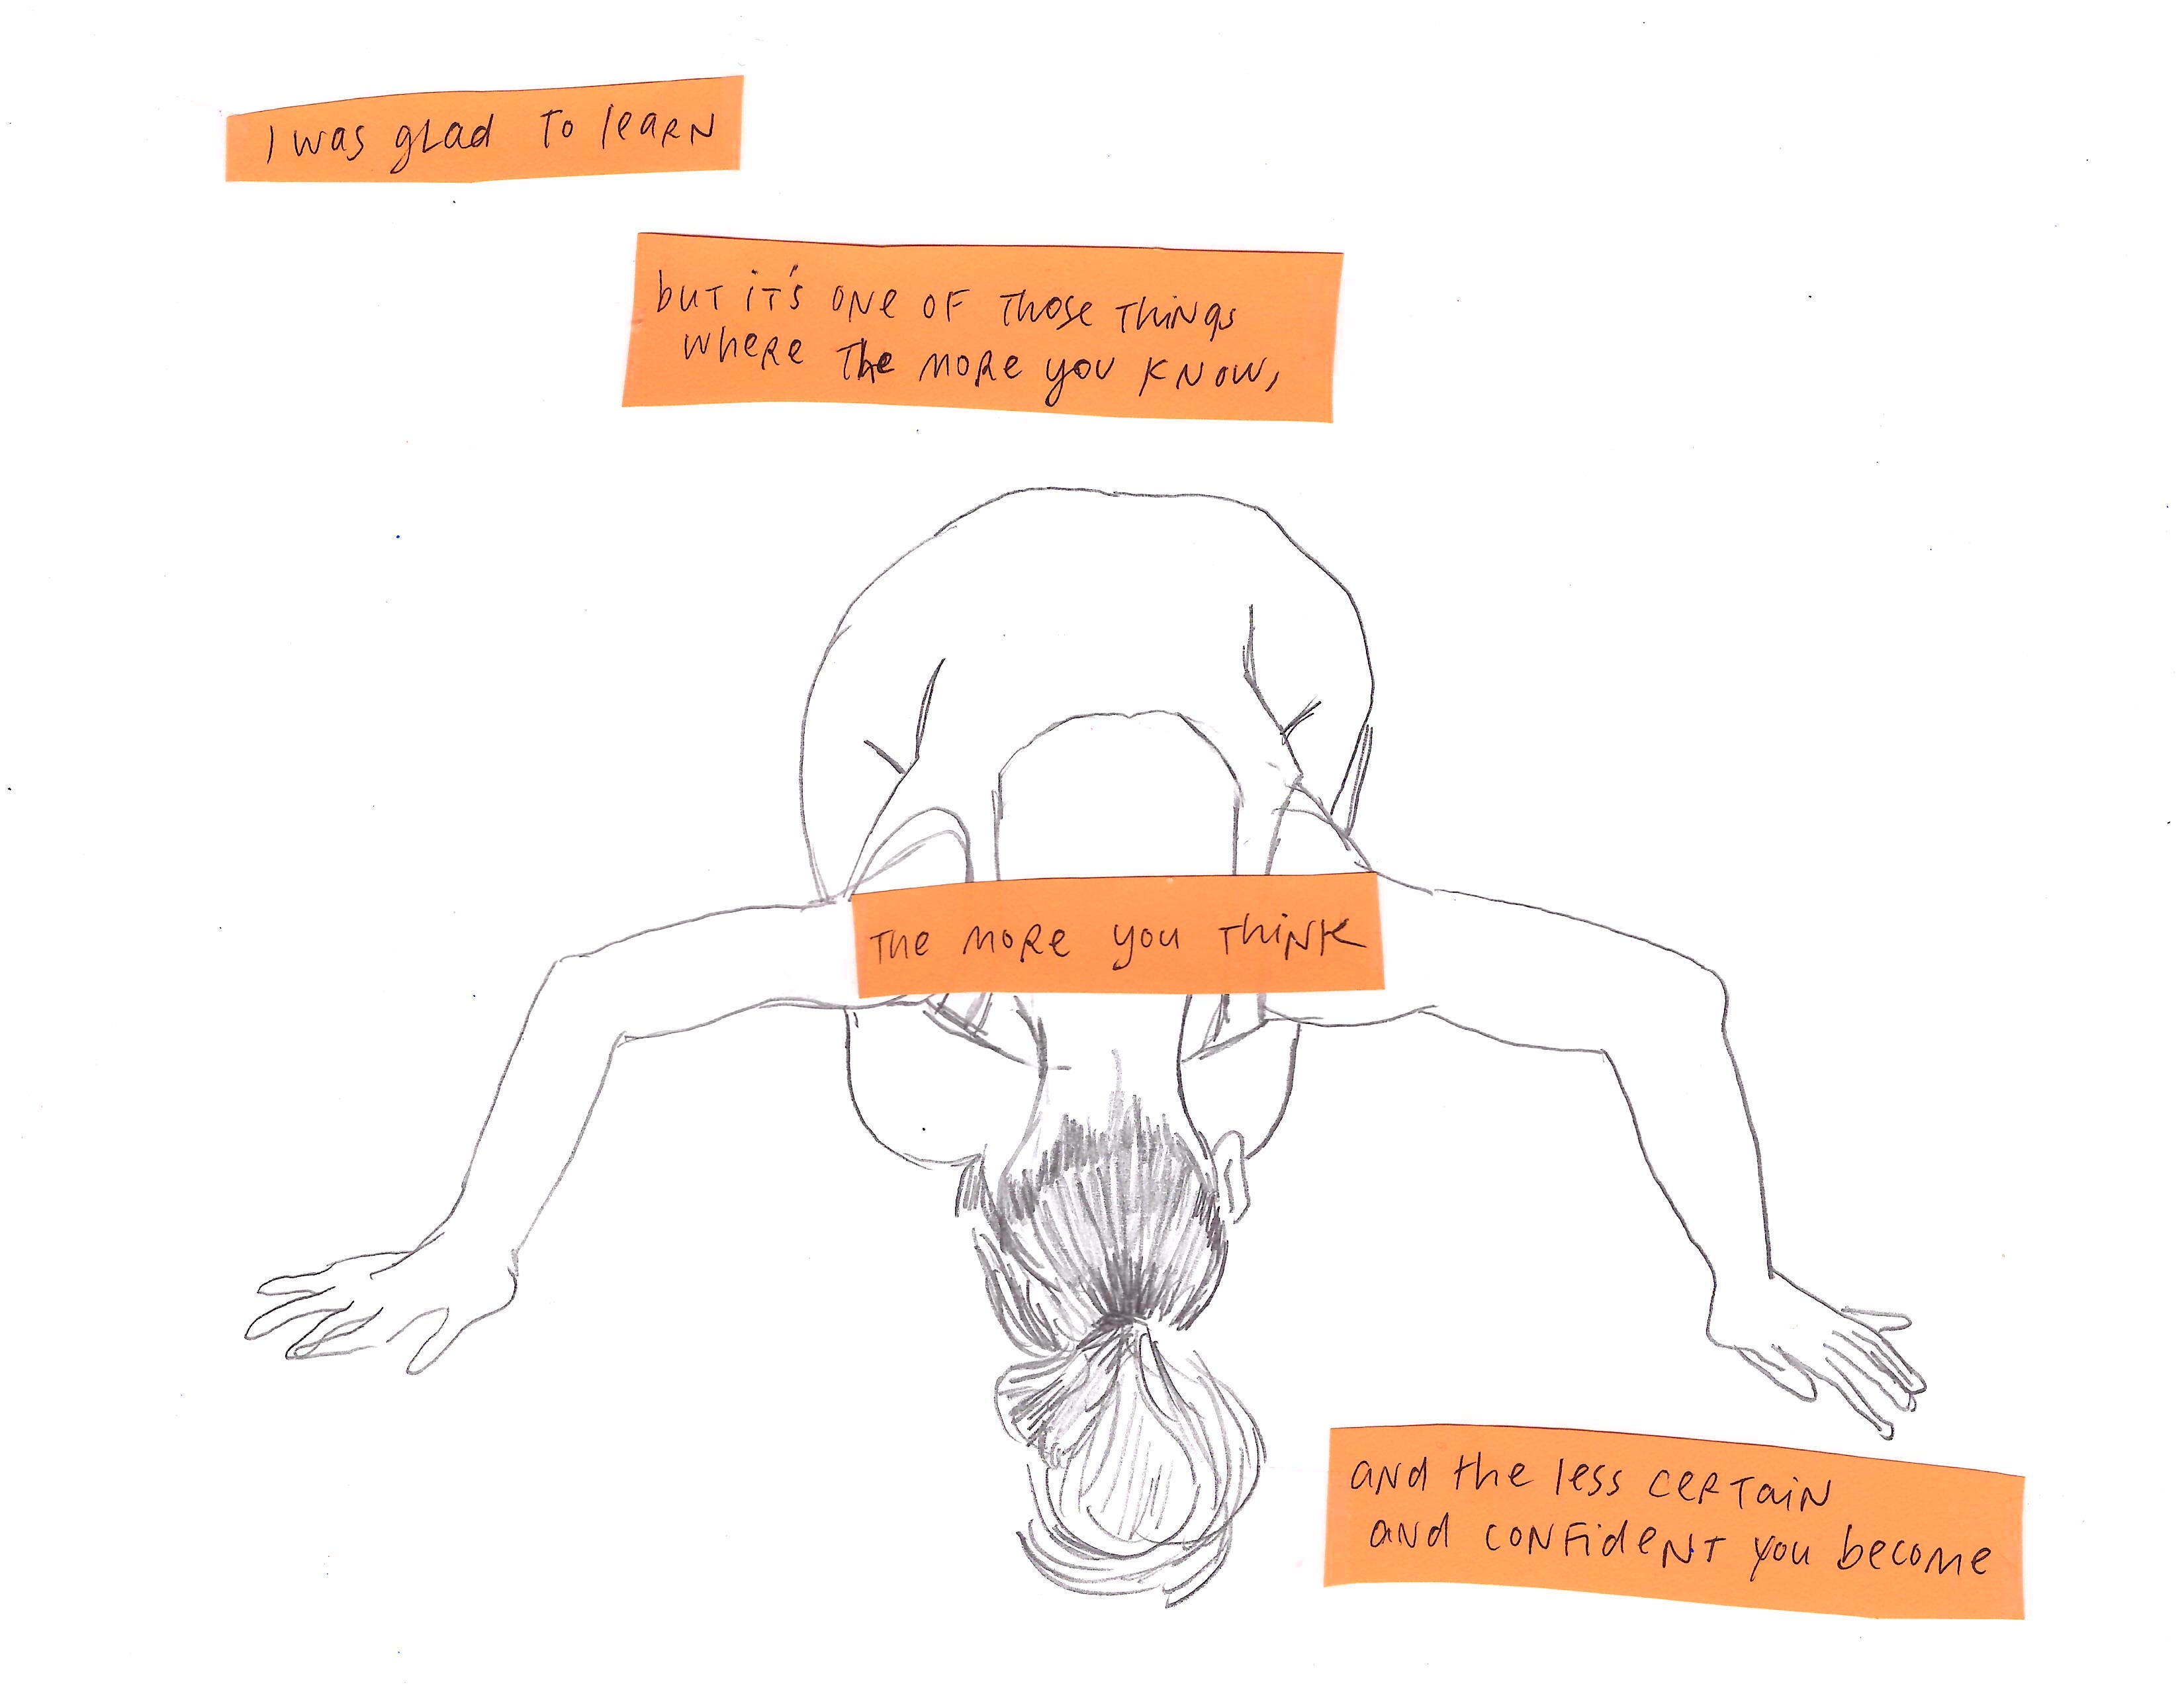 I was glad to learn
but it's one of those things
where the more you know,
the more you think
and the less certain
and confident you become